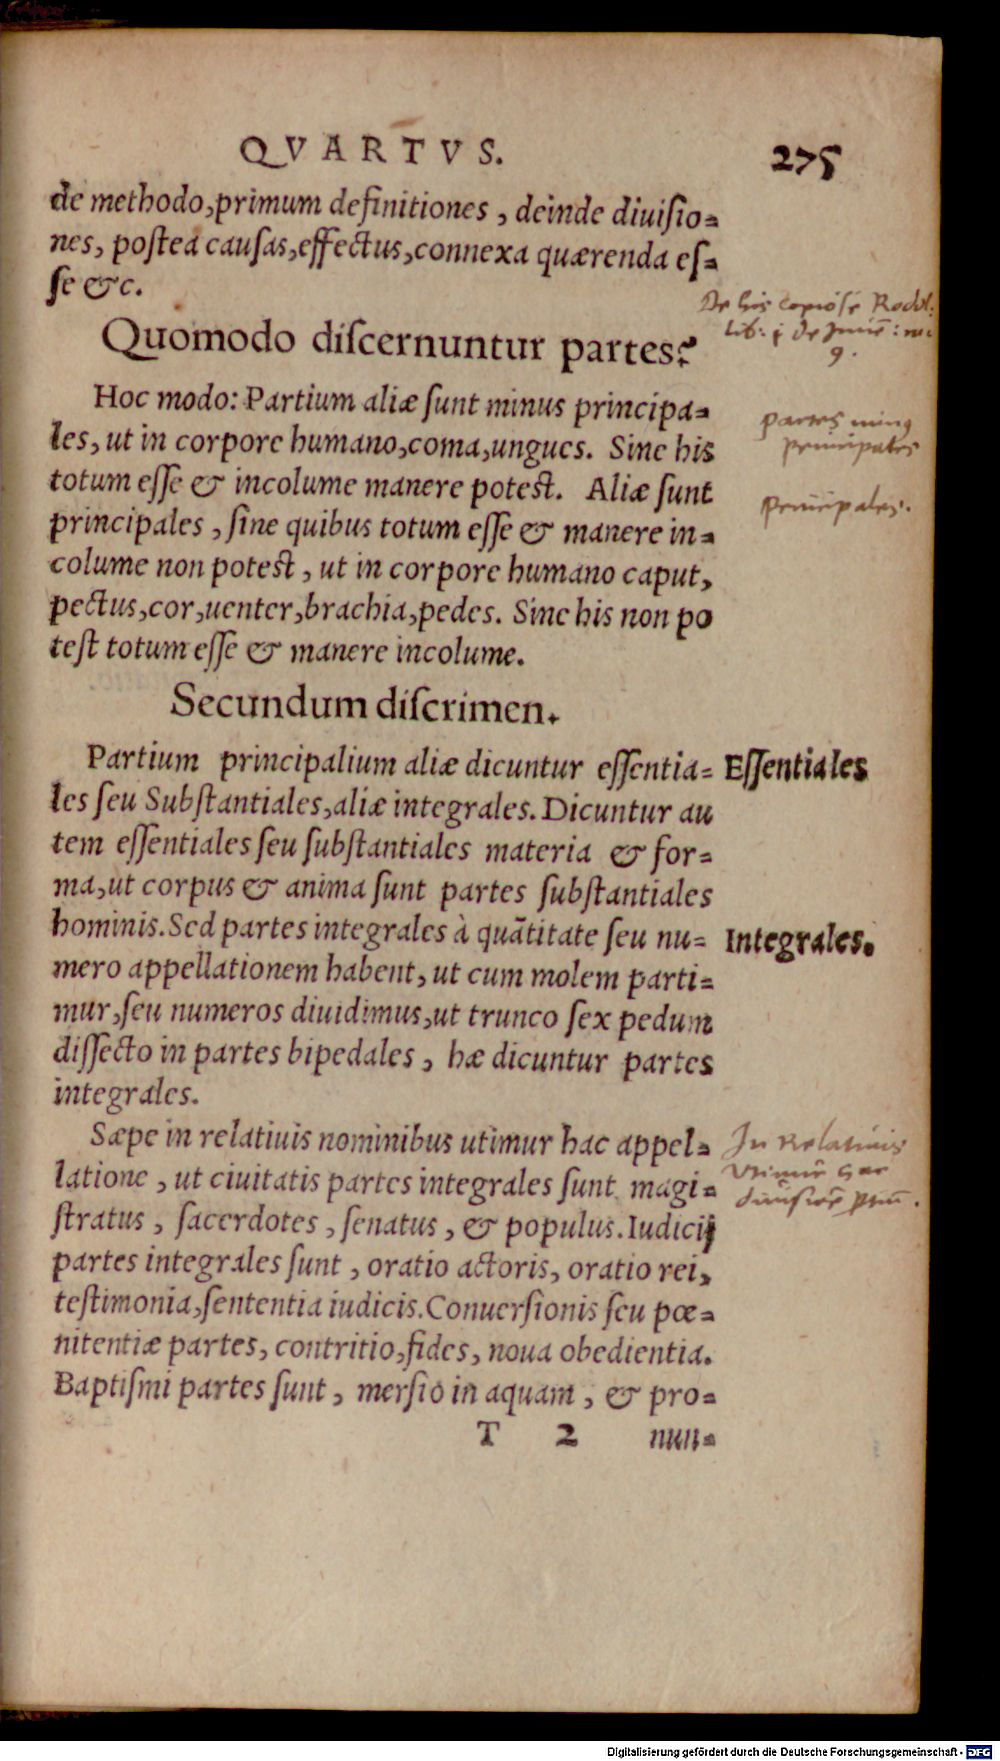 QVARTVS.
275
de methodo, primum definitiones, deinde diuiſio=
nes, poſtea cauſas, effectus, connexa quærenda eſ=
ſe &c.
De his copiosè Rodol:
lib: j de Inuē:
9.
Quomodo diſcernuntur partes?
Hoc modo: Partium aliæ ſunt minus principa=
les, ut in corpore humano, coma, ungues. Sine his
totum eſſe & incolume manere poteſt. Aliæ ſunt
principales, ſine quibus totum eſſe & manere in=
colume non poteſt, ut in corpore humano caput,
pectus, cor, uenter, brachia, pedes. Sine his non po
teſt totum eſſe & manere incolume.
partes minus
principales
principales.
Secundum diſcrimen.
Partium principalium aliæ dicuntur eſſentia=
les ſeu Subſtantiales, aliæ integrales. Dicuntur au
tem eſſentiales ſeu ſubſtantiales materia & for=
ma, ut corpus & anima ſunt partes ſubſtantiales
hominis. Sed partes integrales à quãtitate ſeu nu=
mero appellationem habent, ut cum molem parti=
mur, ſeu numeros diuidimus, ut trunco ſex pedum
diſſecto in partes bipedales, hæ dicuntur partes
integrales.
Eſſentiales
Integrales.
Sæpe in relatiuis nominibus utimur hac appel=
latione, ut ciuitatis partes integrales ſunt magi=
ſtratus, ſacerdotes, ſenatus, & populus. Iudicij
partes integrales ſunt, oratio actoris, oratio rei,
teſtimonia, ſententia iudicis. Conuerſionis ſeu pœ=
nitentiæ partes, contritio, fides, noua obedientia.
Baptiſmi partes ſunt, merſio in aquam, & pro=
In Relatiuis
vtimur hac
diuisiōe
T 2 nun=
Digitalisierung gefördert durch die Deutsche Forschungsgemeinschaft - DFG